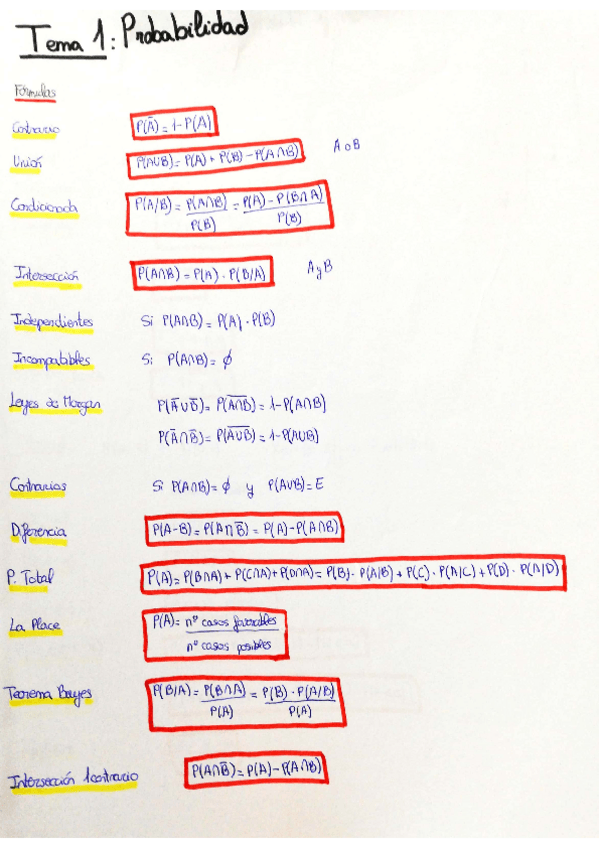 Tema 1: Probabilidad
Fórmulas
Contrario P(Ā) = 1-P(A)
Unión P(A∪B) = P(A) + P(B) - P(A∩B) A o B
Condicionada P(A/B) = P(A∩B)/P(B) = P(A) - P(B∩A)/P(B)
Intersección P(A∩B) = P(A) · P(B/A) A y B
Independientes Si P(A∩B) = P(A) · P(B)
Incompatibles Si P(A∩B) = ∅
Leyes de Morgan P(Ā∪B̅) = P(A̅∩̅B̅) = 1-P(A∩B)
P(Ā∩B̅) = P(A̅∪̅B̅) = 1-P(A∪B)
Contrarios Si P(A∩B) = ∅ y P(A∪B) = E
Diferencia P(A-B) = P(A∩B̅) = P(A) - P(A∩B)
P. Total P(A) = P(B∩A) + P(C∩A) + P(D∩A) = P(B) · P(A/B) + P(C) · P(A/C) + P(D) · P(A/D)
La Place P(A) = nº casos favorables
nº casos posibles
Teorema Bayes P(B/A) = P(B∩A)/P(A) = P(B) · P(A/B)/P(A)
Intersección 1 contrario P(A∩B̅) = P(A) - P(A∩B)